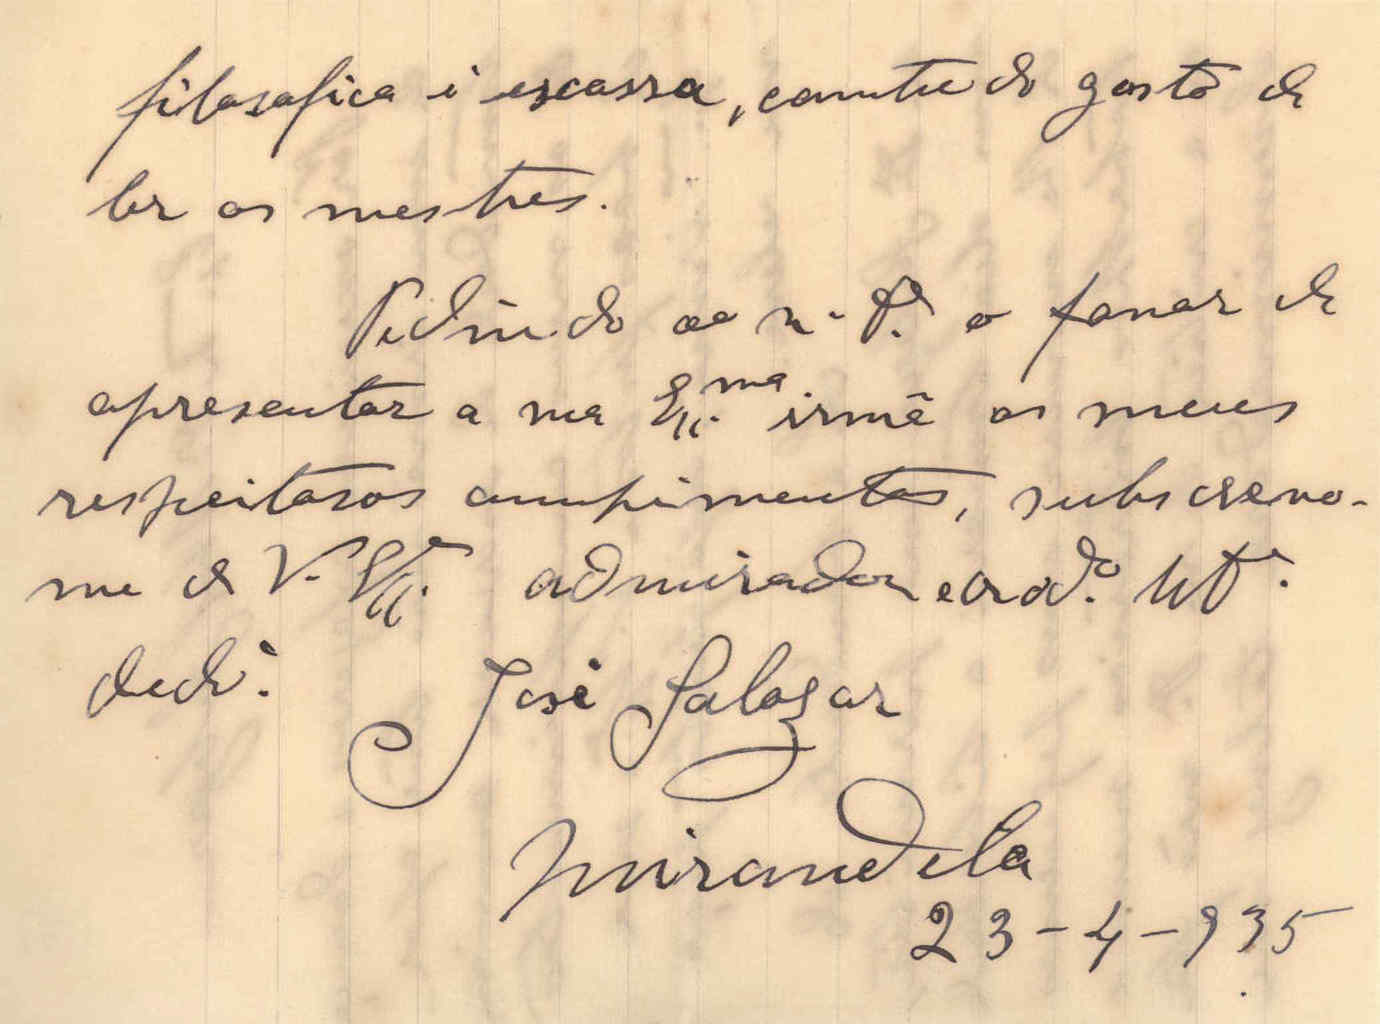 filosofica é escassa, comtudo gosto de
ler os mestres.
Pedindo ao n. P.e o favor de
apresentar a sua Ex.ma irmã os meus
respeitosos cumprimentos, subscrevo-
me de V. Ex.ª admirador e crd.º
José Salazar
Mirandela
23-4-935